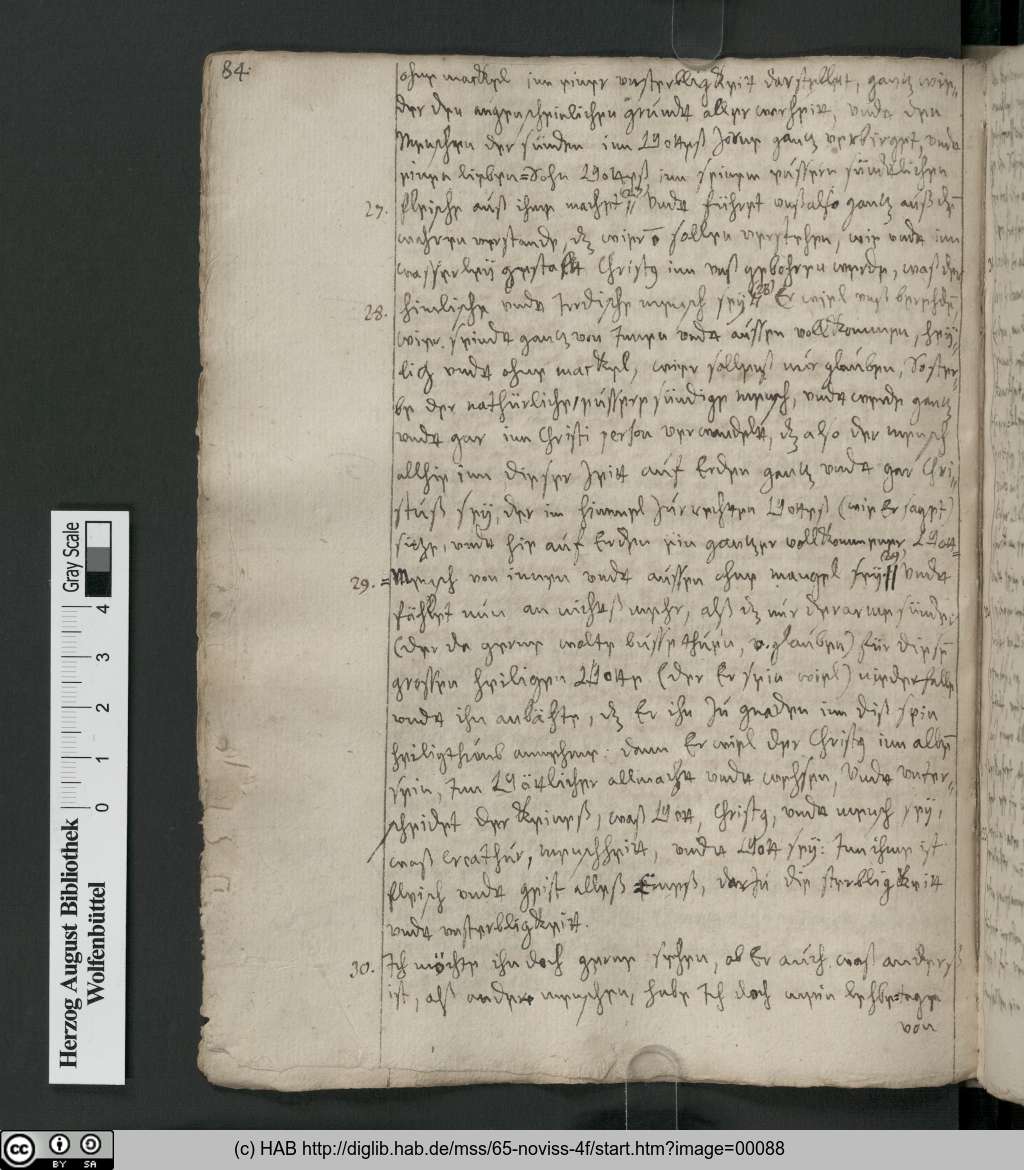 84.
ohne mackel inn einer unsterbligkeit darstellet, gantz wie-
der den augenscheinlichen grundt aller warheit, undt den
Menschen der sünden inn Gottes Zorne gantz verbirget, undt
einen lieben=Sohn Gottes inn seinem eüssern sündtlichen
27. fleische auß ihme machet (27) Undt führet unß also gantz auß dē
wahren verstande, dz wier ō sollen verstehen, wie undt inn
wasserleÿ gestalt Christ9 inn unß gebohren werde, waß der
28. himlische undt Irrdische mensch seÿ (28) Er wiel unß bereden
wier seindt gantz von Innen undt aüssen vollkommen, heÿ-
lich undt ohne mackel, wier sollenß nur glauben, So ster-
be der nathürliche, eüssere sündige mensch, undt werde gantz
undt gar inn Christi person verwandelt, dz also der mensch
allhie inn dieser Zeit auf Erden gantz undt gar Chri-
stuß seÿ, der im himmel Zur rechten Gottes (wie Er saget)
sitze, undt hie auf Erden ein gantzer vollkommener, Gott-
29. =Mensch von innen undt aüssen ohne mangel seÿ (29) Undt
fählet nun an nichtß mehr, alß dz nur der arme sünder
(der da gerne wolte busse thun, v. glauben) für diesē
grossen heiligen Gotte (der Er sein wiel) niederfalle
undt ihn anbähte, dz Er ihn Zu gnaden inn diß sein
heiligthumb annehme: dann Er wiel der Christ9 inn allen
sein, Inn Göttlicher allmacht undt wesen, Undt unter-
scheidet der keineß, waß Gott, Christ9, undt mensch seÿ,
waß Creathur, menschheit, undt Gott seÿ: Inn ihme ist
fleisch undt geist alleß Eineß, darzu die sterbligkeit
undt unsterbligkeit.
30. Ich möchte ihn doch gerne sehen, ob Er auch waß anderß
ist, alß andere menschen, habe Ich doch mein lebetage
von
Gray Scale
0 1 2 3 4
Herzog August Bibliothek
Wolfenbüttel
cc BY SA
(c) HAB http://diglib.hab.de/mss/65-noviss-4f/start.htm?image=00088